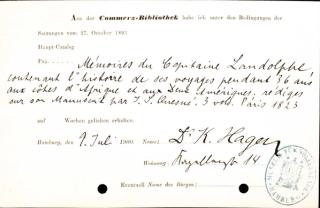 Aus der Commerz-Bibliothek habe ich unter den Bedingungen der
Satzungen vom 27. October 1893
Haupt-Catalog
Pag. Mémoires du Capitaine Landolphe
contenant l'histoire de ses voyages pendant 36 ans
aux côtes d'Afrique et aux deux Amériques, rédigés
sur son Manuscrit par J. S. Quesné. 3 vol. Paris 1823
auf Wochen geliehen erhalten.
Hamburg, den 9. Juli 1900. Name: Dr K. Hagen
Wohnung: 14
Eventuell Name des Bürgen: